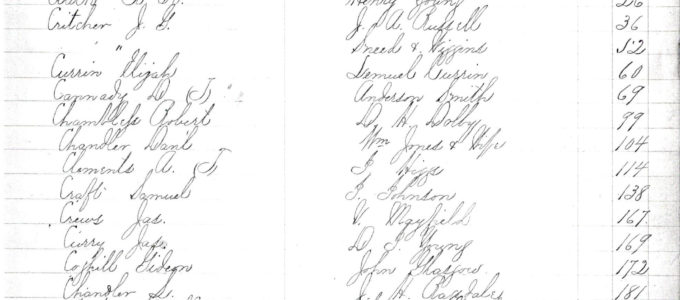 Henry Young 26
Critcher J. G. J. A. Russell 36
" Sneed & Higgins 52
Currin Elijah Lemuel Currin 60
Cannady D. (J) " Anderson Smith 69
Chambless Robert D. H. Dolby 99
Chandler Danl Wm Jones & Wife 104
Clements A. (J J. Higgs 114
Craft Samuel J. Johnson 138
Crews Jas. V. Mayfield 167
Curry Jas. D. J. Young 169
Coghill Gideon John Glasgow 172
Chandler H. Ragsdale 181